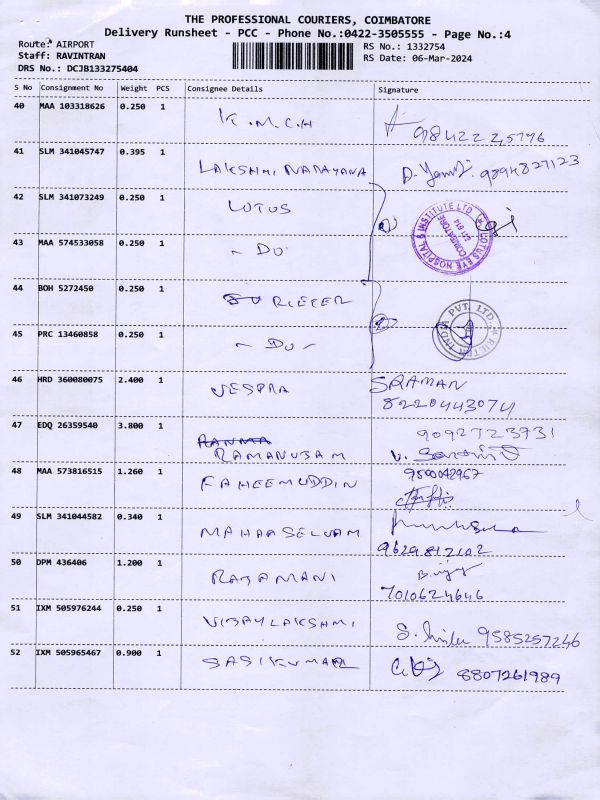 THE PROFESSIONAL COURIERS, COIMBATORE
Delivery Runsheet - PCC - Phone No.:0422-3505555 - Page No.:4
Route: AIRPORT
RS No.: 1332754
Staff: RAVINTRAN
RS Date: 06-Mar-2024
DRS No.: DCJB133275404
S No Consignment No Weight PCS Consignee Details Signature
40 MAA 103318626 0.250 1 K.M.C.H 9842225796
41 SLM 341045747 0.395 1 LAKSHMI NARAYANA 9894827123
42 SLM 341073249 0.250 1 LOTUS
LOTUS EYE HOSPITAL & INSTITUTE LTD
COIMBATORE
641 014
43 MAA 574533058 0.250 1 - DO -
44 BOH 5272450 0.250 1
PVT. LTD
45 PRC 13460858 0.250 1 - DO -
46 HRD 360080075 2.400 1 VESPRA SRAMAN
8220443074
47 EDQ 26359540 3.800 1 9092723931
RAMANUJAM
48 MAA 573816515 1.260 1 FAHEEMUDDIN 9500042967
49 SLM 341044582 0.340 1 MAHAASELVAM
9629812102
50 DPM 436406 1.200 1 RAJAMANI
7010624646
51 IXM 505976244 0.250 1 VIJAYLAKSHMI 9585257246
52 IXM 505965467 0.900 1 SASIKUMAR 8807261989